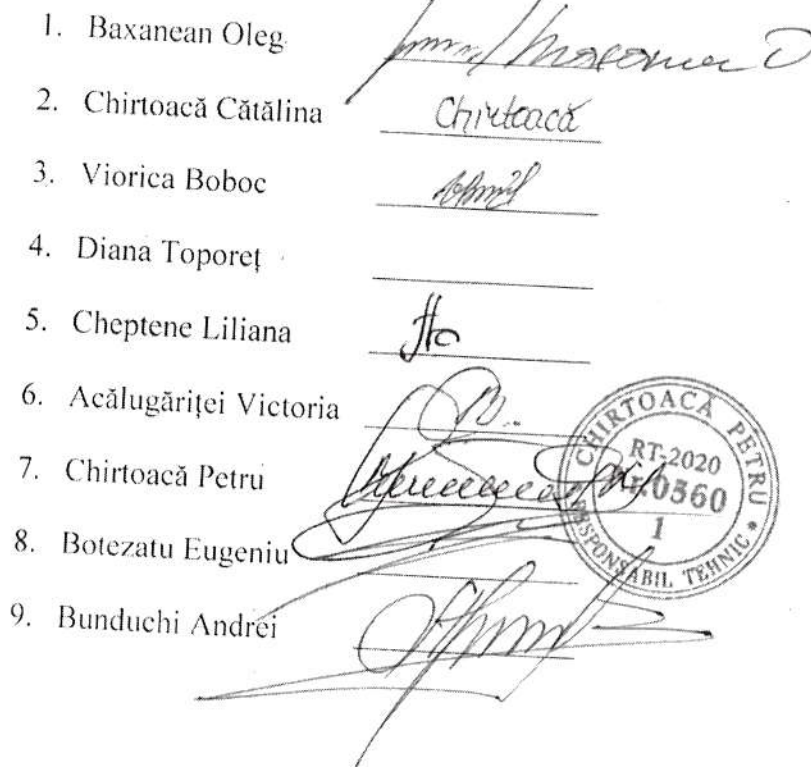 1. Baxanean Oleg
2. Chirtoacă Cătălina Chirtoacă
3. Viorica Boboc
4. Diana Toporeț
5. Cheptene Liliana
6. Acălugăriței Victoria
7. Chirtoacă Petru
8. Botezatu Eugeniu
9. Bunduchi Andrei
CHIRTOACĂ PETRU
RT-2020
Nr.0560
1
RESPONSABIL TEHNIC